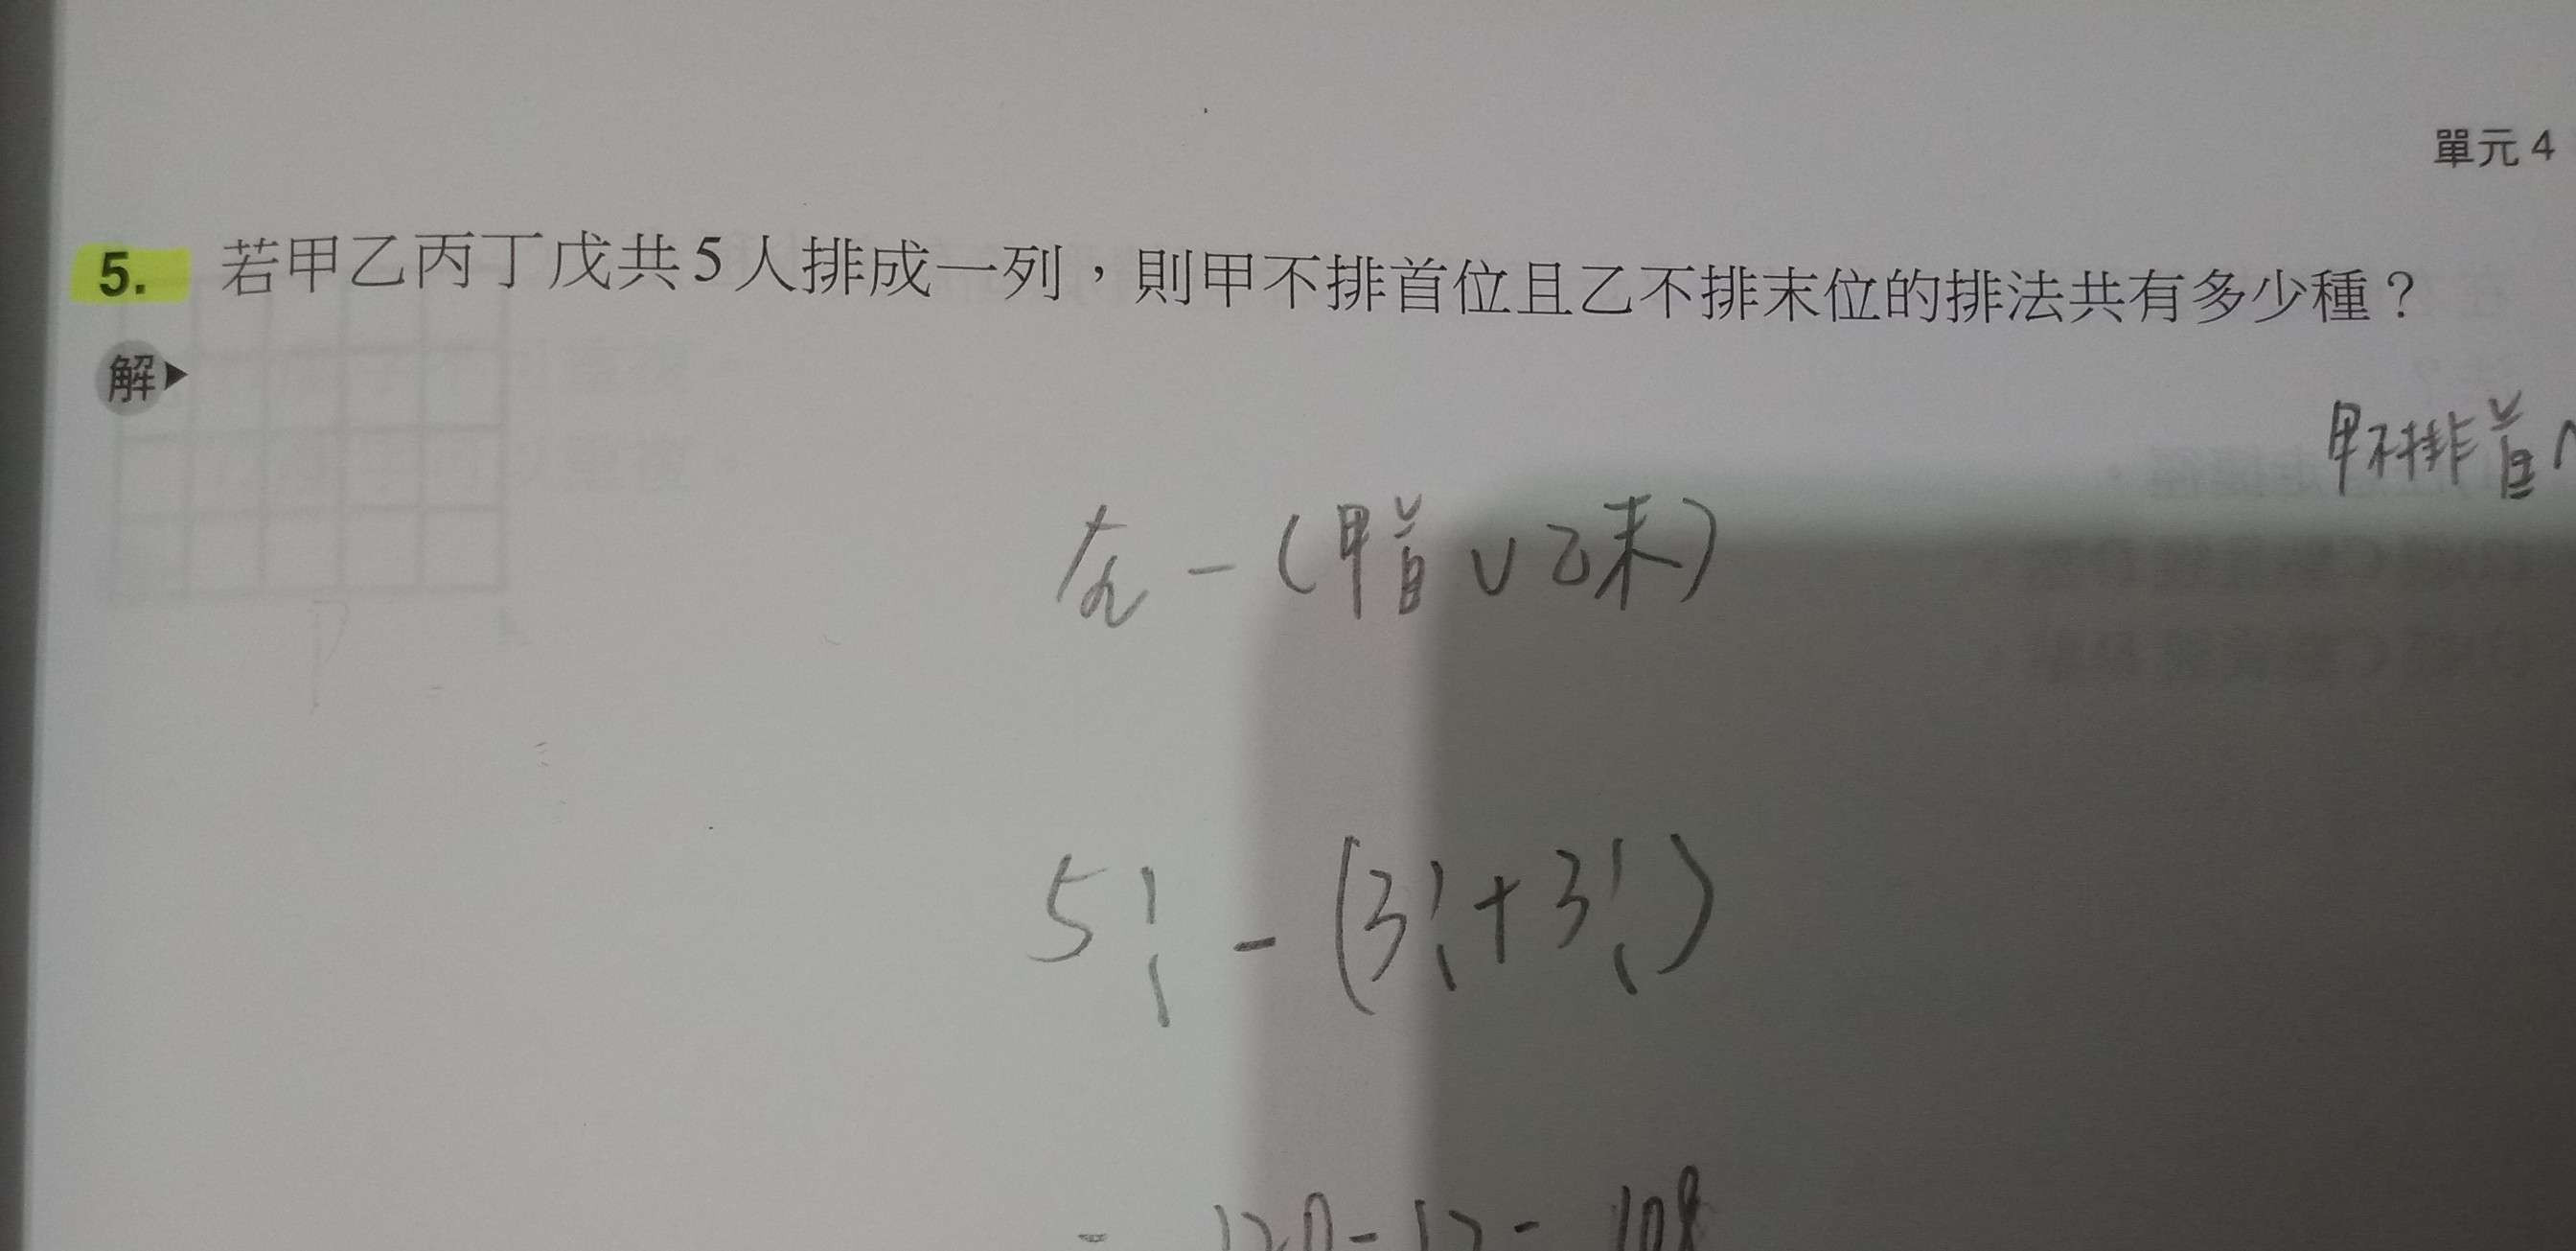 單元 4
5. 若甲乙丙丁戊共5人排成一列，則甲不排首位且乙不排末位的排法共有多少種？
解▶
甲不排首∩
右-(甲首∪乙末)
5!-(3!+3!)
= 120-12= 108